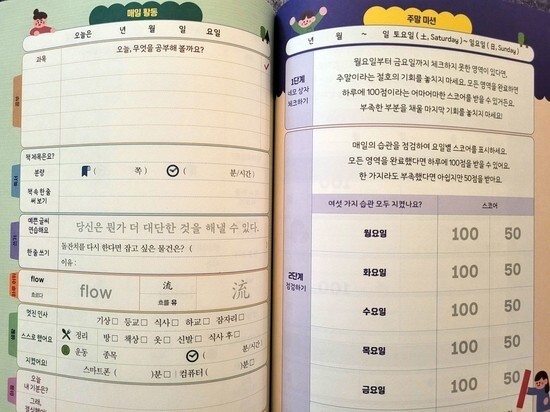 매일 활동
오늘은 년 월 일 요일
오늘, 무엇을 공부해 볼까요?
과목
책 제목은요?
분량 ( 쪽) ( 분/시간)
책 속 한 줄
써 보기
예쁜 글씨
연습해요
당신은 뭔가 더 대단한 것을 해낼 수 있다.
한 줄 쓰기
돌잔치를 다시 한다면 잡고 싶은 물건은? (
이유:
flow
흐르다
flow
流
흐를 유
流
멋진 인사
기상 □ 등교 □ 식사 □ 하교 □ 잠자리 □
스스로 했어요
정리 방 □ 책상 □ 옷 □ 신발 □ 식사 후 □
운동 종목 ( 분/시간)
지켰어요!
스마트폰 ( )분 □ 컴퓨터 ( )분 □
오늘
내 기분은?
그래,
결심했어
주말 미션
년 월 ~ 일 토요일 (土, Saturday) ~ 일요일 (日, Sunday)
1단계
네모 상자
체크하기
월요일부터 금요일까지 체크하지 못한 영역이 있다면,
주말이라는 절호의 기회를 놓치지 마세요. 모든 영역을 완료하면
하루에 100점이라는 어마어마한 스코어를 받을 수 있거든요.
부족한 부분을 채울 마지막 기회를 놓치지 마세요!
매일의 습관을 점검하여 요일별 스코어를 표시하세요.
모든 영역을 완료했다면 하루에 100점을 받을 수 있어요.
한 가지라도 부족했다면 아쉽지만 50점을 받아요.
2단계
점검하기
여섯 가지 습관 모두 지켰나요?
스코어
월요일 100 50
화요일 100 50
수요일 100 50
목요일 100 50
금요일 100 50